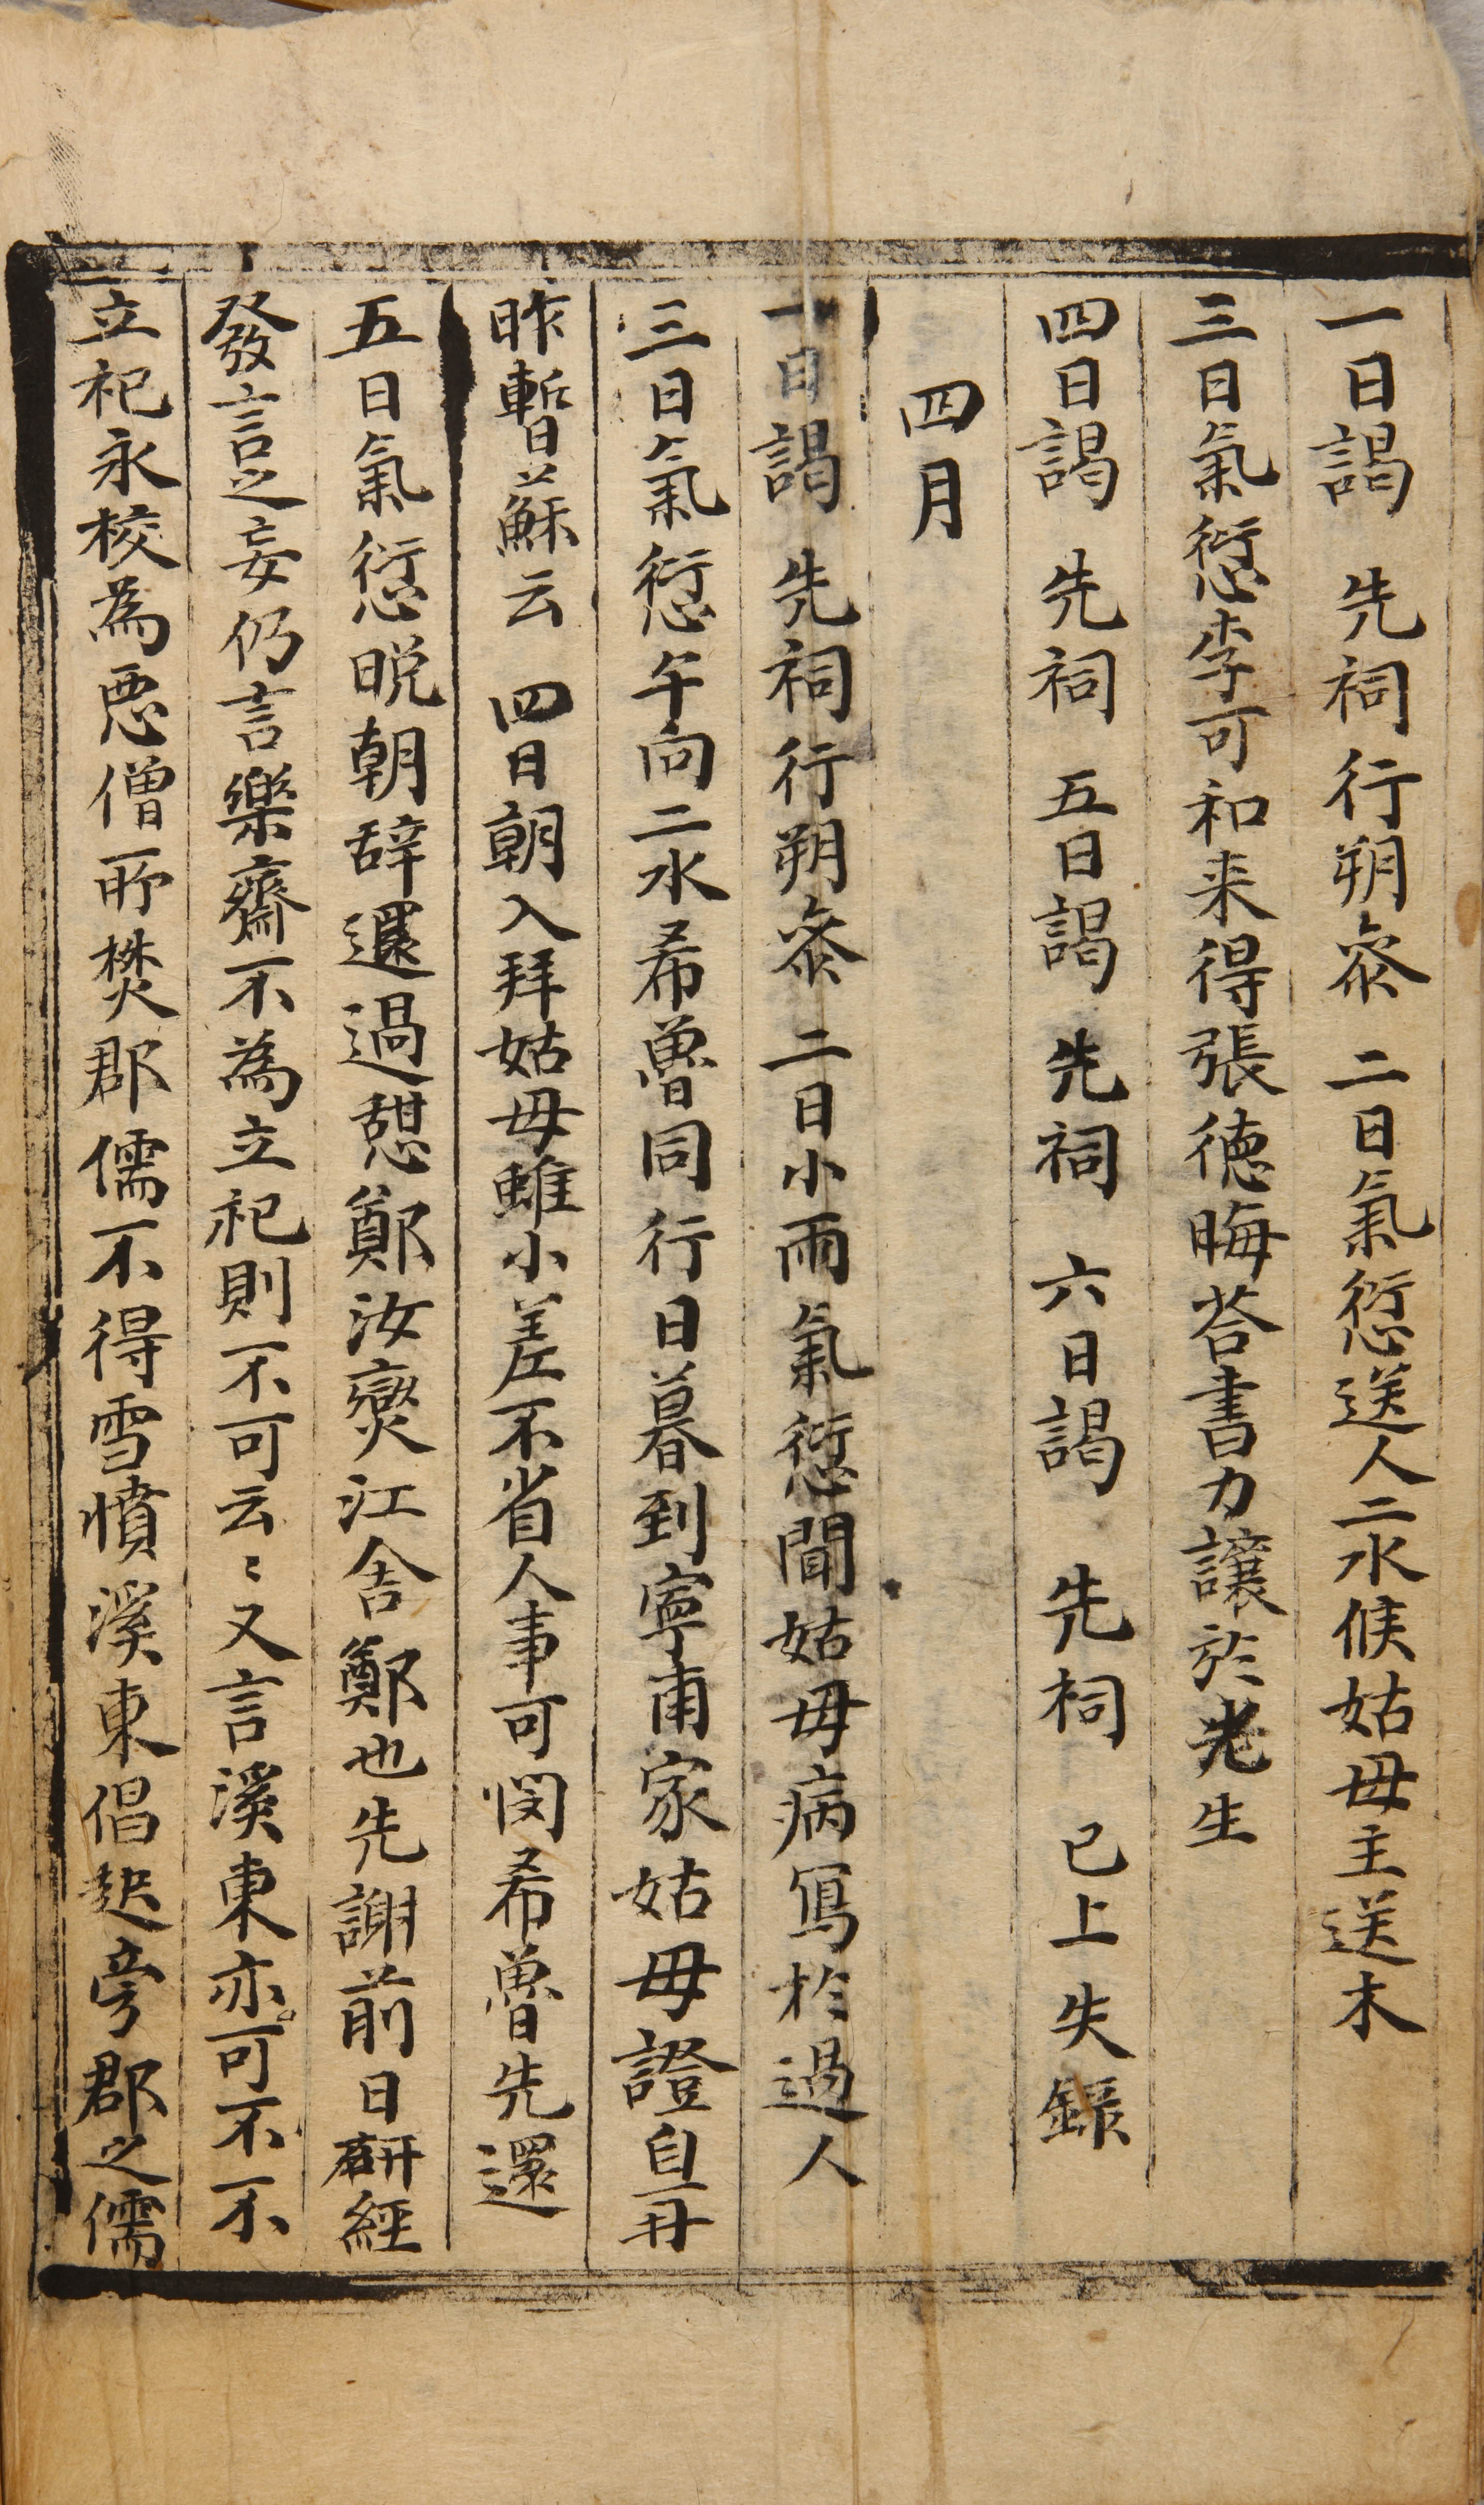 一日謁 先祠行朔叅 二日氣愆送人二水候姑母主送木
三日氣愆李可和来得張徳晦荅書力讓於老生
四日謁 先祠 五日謁 先祠 六日謁 先祠 已上失錄
四月
一日謁 先祠行朔叅 二日小雨氣愆聞姑母病寫於過人
三日氣愆午向二水希魯同行日暮到寧甫家姑母證自再
昨暫蘇云 四日朝入拜姑母雖小差不省人事可悶希魯先還
五日氣愆晩朝辞還過憩鄭汝爕江舍鄭也先謝前日硏經
發言之妄仍言樂齋不為立祀則不可云〻又言溪東亦可不不
立祀永校為悪僧所焚郡儒不得雪憤溪東倡起旁郡之儒